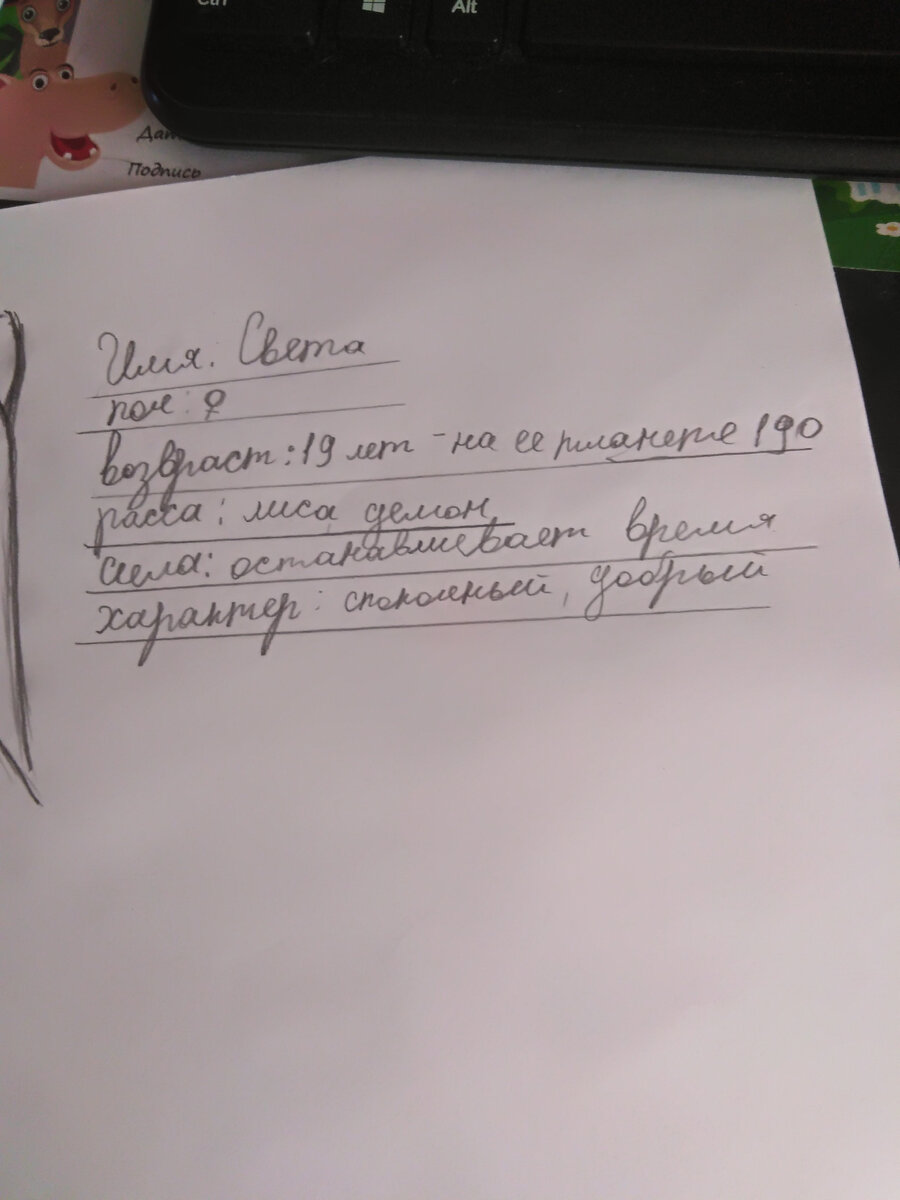 Ctrl
Alt
Дат
Подпись
Имя. Света
пол: ♀
возвраст: 19 лет - на ее планете 190
расса: лиса, демон
сила: останавливает время
характер: спокойный, добрый